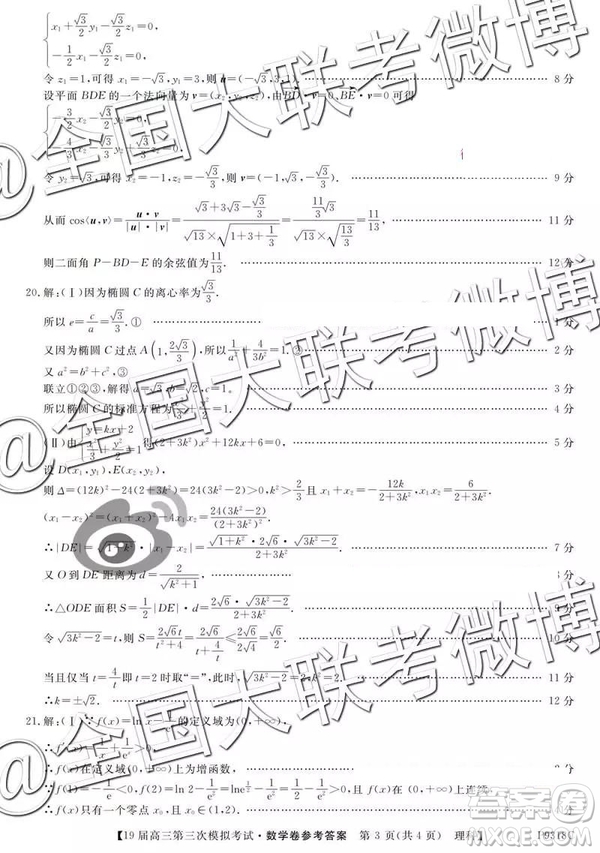 x₁+√3/2 y₁+√3/2
-1/2 x₁-√3/2
令 z₁=1,可得 x₁=-√3,y₁=3,则 u=(-√3,3, 8 分
设平面 BDE 的一个法向量为 v=(x₂,y₂,z₂),由BD·v=0,BE·v=0 可得
令 y₂=√3,可得 则 v=(-1,√3,-√3/3). 9 分
从而 cos⟨u,v⟩=u·v/|u|·|v|=(√3+3√3-√3/3)/(√13×√(1+3+1/3))=(11√3/3)/(13√3/3)=11/13, 11 分
则二面角 P-BD-E 的余弦值为11/13. 12 分
20.解:(Ⅰ)因为椭圆 C 的离心率为√3/3.
所以 e=c/a=√3/3.① 1 分
又因为椭圆 C 过点 A(1,2√3/3),所以1/a²+4/3b²=1.② 2 分
又 a²=b²+c²,③
联立①②③,解得 a=√3,b=√2,c=1.
所以椭圆 C 的标准方程为x²/3+y²/2=1. 4 分
(Ⅱ)由 y=kx+2 x²/3+y²/2=1 得(2+3k²)x²+12kx+6=0 5 分
设 D(x₁,y₁),E(x₂,
则 Δ=(12k)²-24(2+3k²)>0,k²>2/3且 x₁+x₂=-12k/(2+3k²),x₁x₂=6/(2+3k²)
(x₁-x₂)²=(x₁+x₂)²-4x₁x₂=24(3k²-2)/(2+3k²)²
∴|DE|=√(1+k²)·|x₁-x₂|=√(1+k²)·2√6·√(3k²-2)/(2+3k²) 7 分
又 O 到 DE 距离为 d=2/√(k²+1) 8 分
∴△ODE 面积 S=1/2|DE|·d=2√6·√(3k²-2)/(2+3k²) 9 分
令 √(3k²-2)=t,则 S=2√6t/(t²+4)=2√6/(t+4/t)≤2√6/4=√6/2 10 分
当且仅当 t=4/t即 t=2 时取“=”,此时,√(3k²-2)=2 11 分
∴k=±√2. 12 分
21.解:(Ⅰ)∵f(x)=ln x-1/eˣ的定义域为(0,+∞),
∴f′(x)=1/x+1/eˣ
∴f(x)在定义域(0,+∞)上为增函数,
∵f(1)=-1/e<0,f(2)=ln2-1/e²>
∴f(x)只有一个零点. 4 分
【19 届高三第三次模拟考试·数学卷参考答案 第 3 页(共 4 页) 理科】
19318C
@全国大联考微博
@全国大联考微博
@全国大联考微博